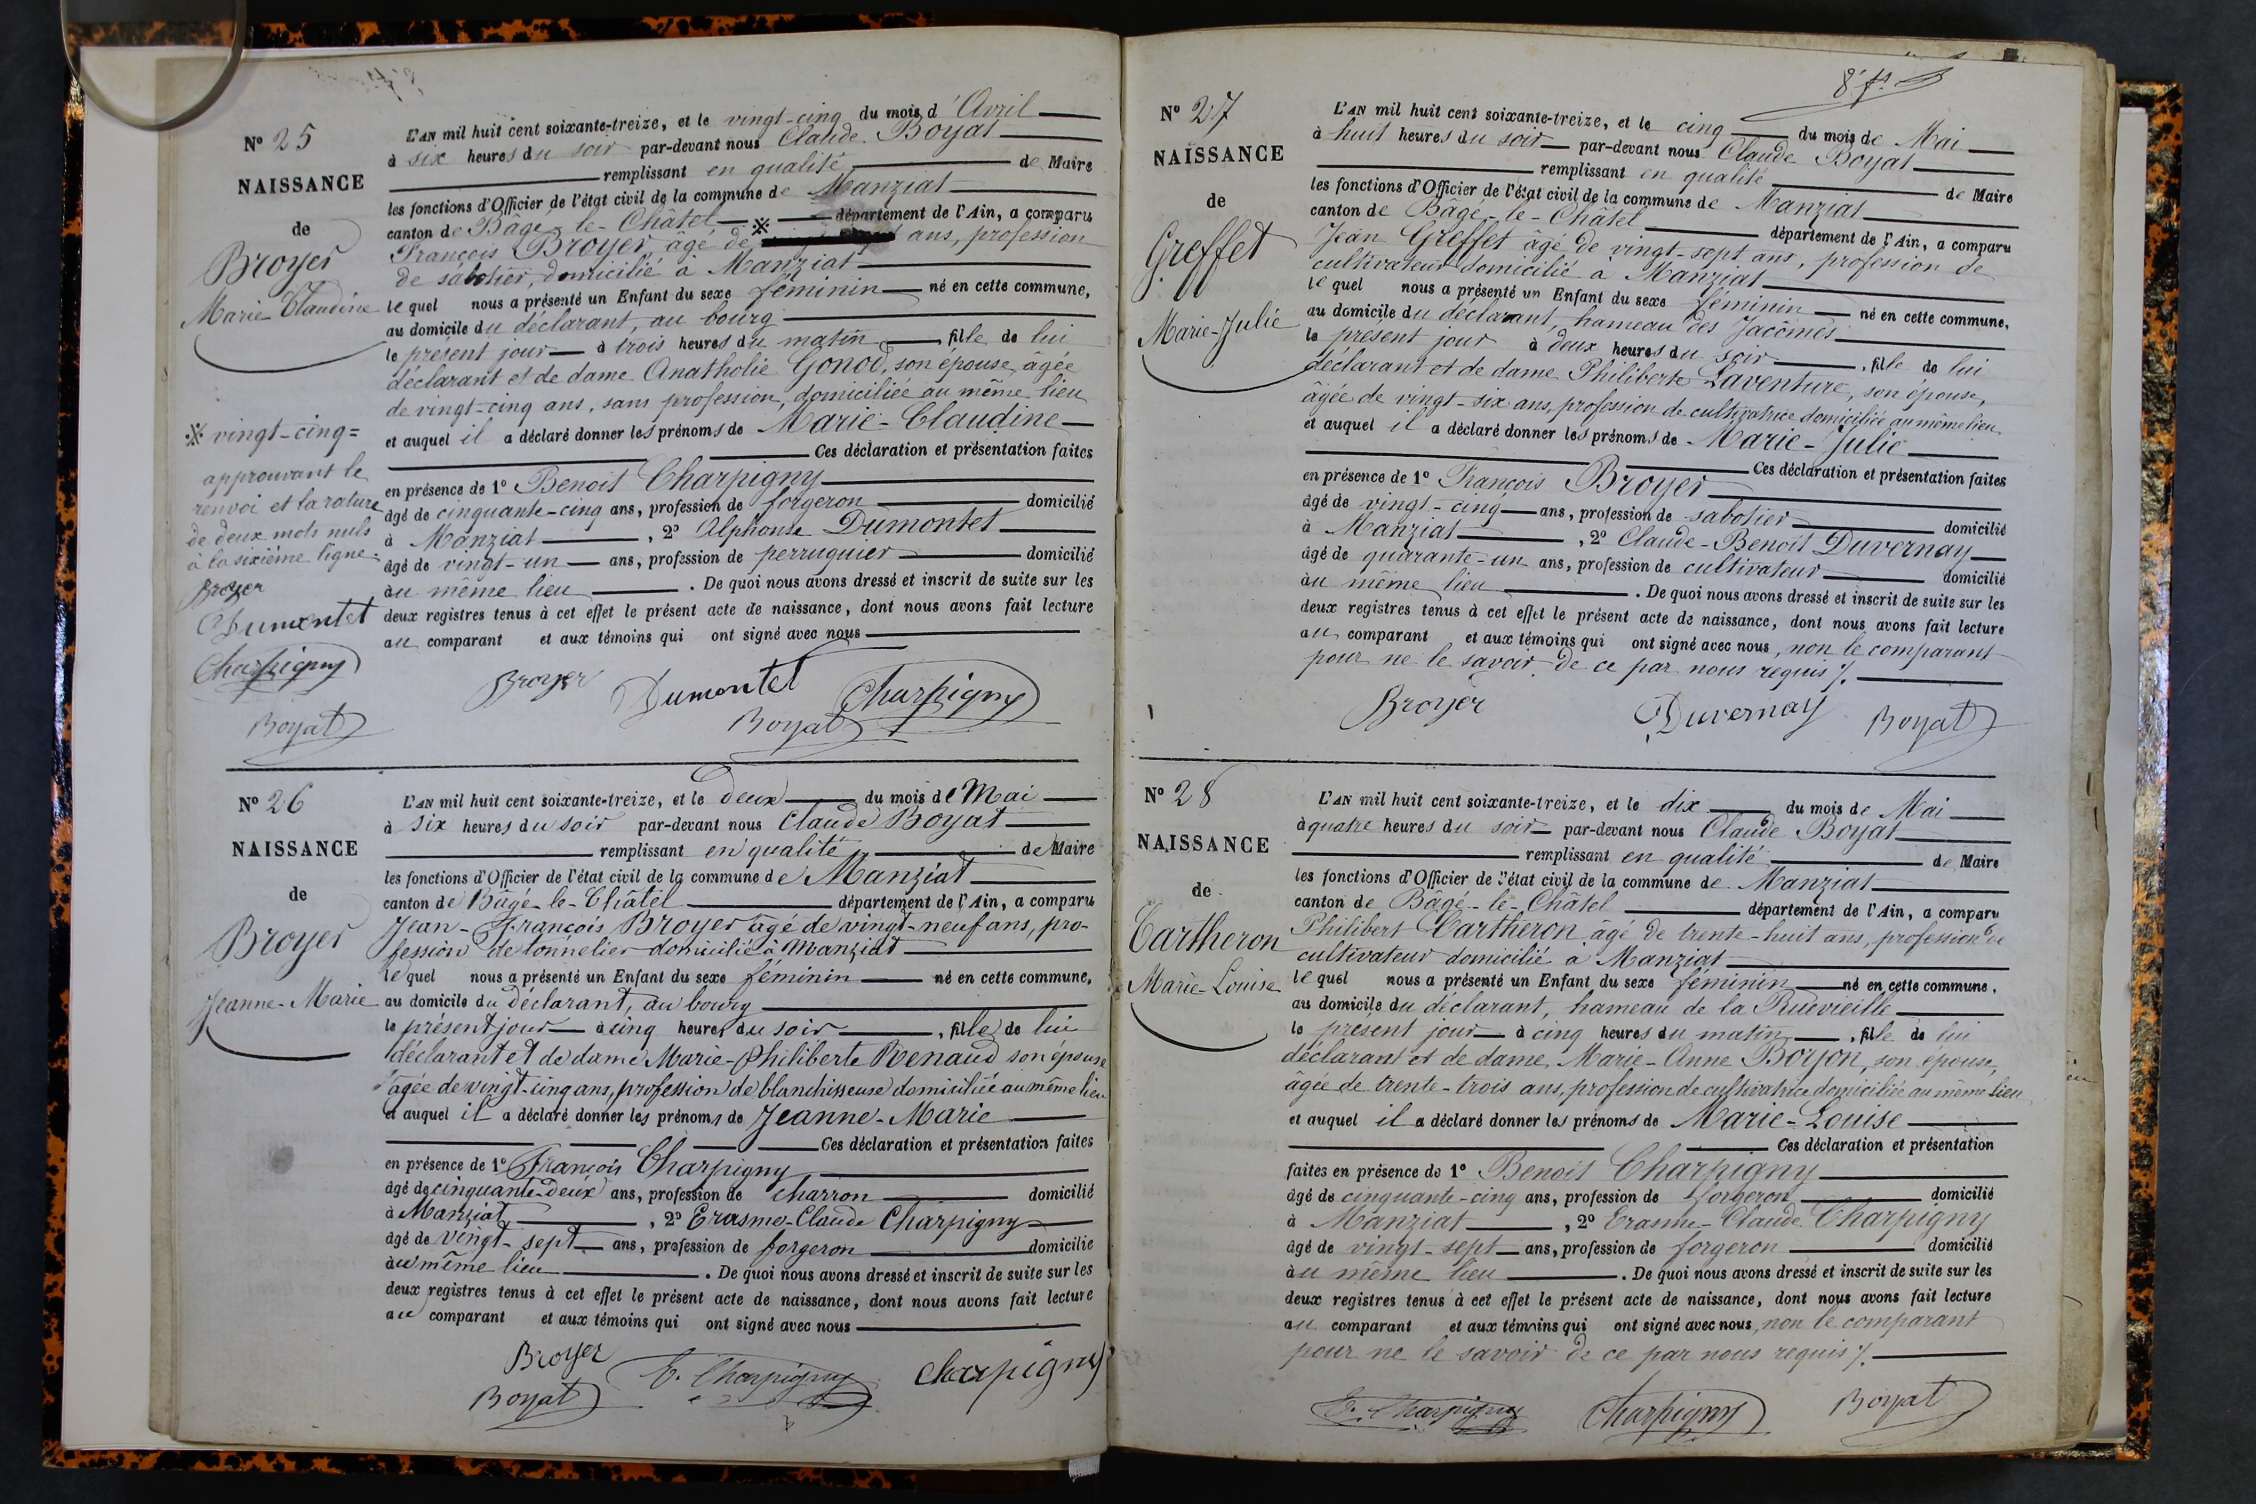 N° 25
NAISSANCE
de
Broyer
Marie-Claudine
※ vingt-cinq=
approuvant le
renvoi et la rature
de deux mots nuls
à la sixième ligne.
Broyer
Dumontet
Charpigny
Boyat
L'AN mil huit cent soixante-treize, et le vingt-cinq du mois d'Avril
à six heures du soir par-devant nous Claude Boyat
remplissant en qualité de Maire
les fonctions d'Officier de l'état civil de la commune de Manziat
canton de Bâgé-le-Châtel département de l'Ain, a comparu
François Broyer, âgé de ※ ans, profession
de sabotier, domicilié à Manziat
lequel nous a présenté un Enfant du sexe féminin né en cette commune,
au domicile du déclarant, au bourg
le présent jour à trois heures du matin, fille de lui
déclarant et de dame Anatholie Gonod, son épouse, âgée
de vingt-cinq ans, sans profession, domiciliée au même lieu
et auquel il a déclaré donner les prénoms de Marie-Claudine
Ces déclaration et présentation faites
en présence de 1° Benoit Charpigny
âgé de cinquante-cinq ans, profession de forgeron domicilié
à Manziat, 2° Alphonse Dumontet
âgé de vingt-un ans, profession de perruquier domicilié
au même lieu. De quoi nous avons dressé et inscrit de suite sur les
deux registres tenus à cet effet le présent acte de naissance, dont nous avons fait lecture
au comparant et aux témoins qui ont signé avec nous
Broyer Dumontet Charpigny
Boyat
N° 26
NAISSANCE
de
Broyer
Jeanne-Marie
L'AN mil huit cent soixante-treize, et le deux du mois de Mai
à six heures du soir par-devant nous Claude Boyat
remplissant en qualité de Maire
les fonctions d'Officier de l'état civil de la commune de Manziat
canton de Bâgé-le-Châtel département de l'Ain, a comparu
Jean-François Broyer âgé de vingt-neuf ans, pro-
fession de tonnelier domicilié à Manziat
lequel nous a présenté un Enfant du sexe féminin né en cette commune,
au domicile du déclarant, au bourg
le présent jour à cinq heures du soir, fille de lui
déclarant et de dame Marie-Philiberte Renaud son épouse
âgée de vingt-cinq ans, profession de blanchisseuse domiciliée au même lieu
et auquel il a déclaré donner les prénoms de Jeanne-Marie
Ces déclaration et présentation faites
en présence de 1° François Charpigny
âgé de cinquante-deux ans, profession de charron domicilié
à Manziat, 2° Erasme-Claude Charpigny
âgé de vingt-sept ans, profession de forgeron domicilié
au même lieu. De quoi nous avons dressé et inscrit de suite sur les
deux registres tenus à cet effet le présent acte de naissance, dont nous avons fait lecture
au comparant et aux témoins qui ont signé avec nous
Broyer E. Charpigny Charpigny
Boyat
N° 27
NAISSANCE
de
Greffet
Marie-Julie
L'AN mil huit cent soixante-treize, et le cinq du mois de Mai
à huit heures du soir par-devant nous Claude Boyat
remplissant en qualité de Maire
les fonctions d'Officier de l'état civil de la commune de Manziat
canton de Bâgé-le-Châtel département de l'Ain, a comparu
Jean Greffet âgé de vingt-sept ans, profession de
cultivateur domicilié à Manziat
lequel nous a présenté un Enfant du sexe féminin né en cette commune,
au domicile du déclarant, hameau des Jacômes
le présent jour à deux heures du soir, fille de lui
déclarant et de dame Philiberte Laventure, son épouse,
âgée de vingt-six ans, profession de cultivatrice domiciliée au même lieu
et auquel il a déclaré donner les prénoms de Marie-Julie
Ces déclaration et présentation faites
en présence de 1° François Broyer
âgé de vingt-cinq ans, profession de sabotier domicilié
à Manziat, 2° Claude-Benoît Duvernay
âgé de quarante-un ans, profession de cultivateur domicilié
au même lieu. De quoi nous avons dressé et inscrit de suite sur les
deux registres tenus à cet effet le présent acte de naissance, dont nous avons fait lecture
au comparant et aux témoins qui ont signé avec nous, non le comparant
pour ne le savoir de ce par nous requis ./.
Broyer Duvernay Boyat
N° 28
NAISSANCE
de
Cartheron
Marie-Louise
L'AN mil huit cent soixante-treize, et le dix du mois de Mai
à quatre heures du soir par-devant nous Claude Boyat
remplissant en qualité de Maire
les fonctions d'Officier de l'état civil de la commune de Manziat
canton de Bâgé-le-Châtel département de l'Ain, a comparu
Philibert Cartheron âgé de trente-huit ans, profession de
cultivateur domicilié à Manziat
lequel nous a présenté un Enfant du sexe féminin né en cette commune,
au domicile du déclarant, hameau de la Ruevieille
le présent jour à cinq heures du matin, fille de lui
déclarant et de dame Marie-Anne Boyon, son épouse,
âgée de trente-trois ans, profession de cultivatrice domiciliée au même lieu
et auquel il a déclaré donner les prénoms de Marie-Louise
Ces déclaration et présentation
faites en présence de 1° Benoit Charpigny
âgé de cinquante-cinq ans, profession de forgeron domicilié
à Manziat, 2° Erasme-Claude Charpigny
âgé de vingt-sept ans, profession de forgeron domicilié
au même lieu. De quoi nous avons dressé et inscrit de suite sur les
deux registres tenus à cet effet le présent acte de naissance, dont nous avons fait lecture
au comparant et aux témoins qui ont signé avec nous, non le comparant
pour ne le savoir de ce par nous requis ./.
E. Charpigny Charpigny Boyat